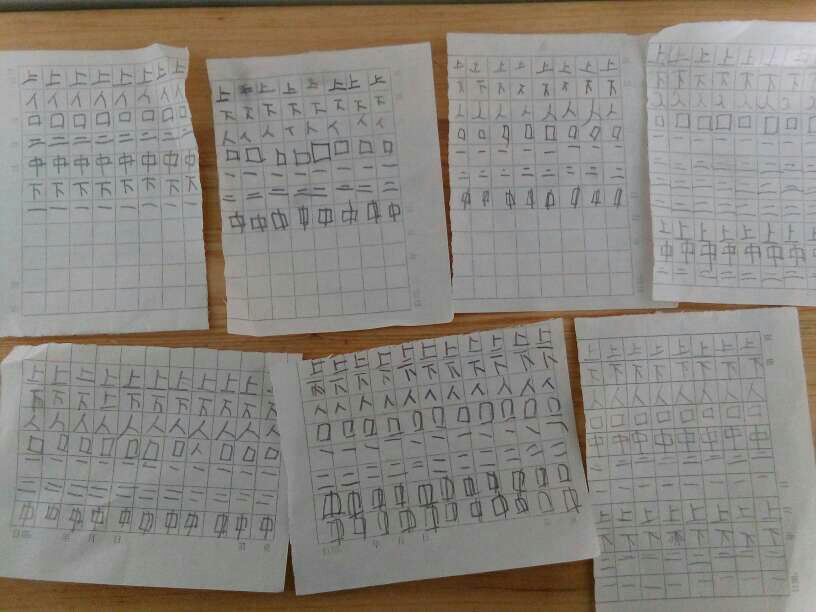 上上上上上上上上
人人人人人人人人
口口口口口口口口
二二二二二二二二
中中中中中中中中
下下下下下下下下
一一一一一一一一
上上上上上上上
下下下下下下下下
人人人人人人人人
口口口口口口口口
一一一一一一一一
二二二二二二二二
中中中中中中中中
上上上上上上上上
下下下下下下下下
人人人人人人人人
口口口口口口口口
一一一一一一一一
二二二二二二二二
中中中中中中中中
上上上上上上上上
下下下下下下下下
人人人人人人人人
口口口口口口口口
一一一一一一一一
二二二二二二二二
上上上上上上上上
中中中中中中中中
二二二二二二二二
上上上上上上上上上上上
下下下下下下下下下下下
人人人人人人人人人人人
口口口口口口口口口口
一一一一一一一一一一一
二二二二二二二二二二二
中中中中中中中中中中中
年 月 日
上上上上上上上上上上上
下下下下下下下下下下下
人人人人人人人人人人人
口口口口口口口口口口口
一一一一一一一一一一一
二二二二二二二二二二二
中中中中中中中中中中中
年 月 日
上上上上上上上上
下下下下下下下下
人人人人人人人人
口口口口口口口口
中中中中中中中中
二二二二二二二二
一一一一一一一一
上上上上上上上上
下下下下下下下
二二二二二二二二
一一一一一一一一